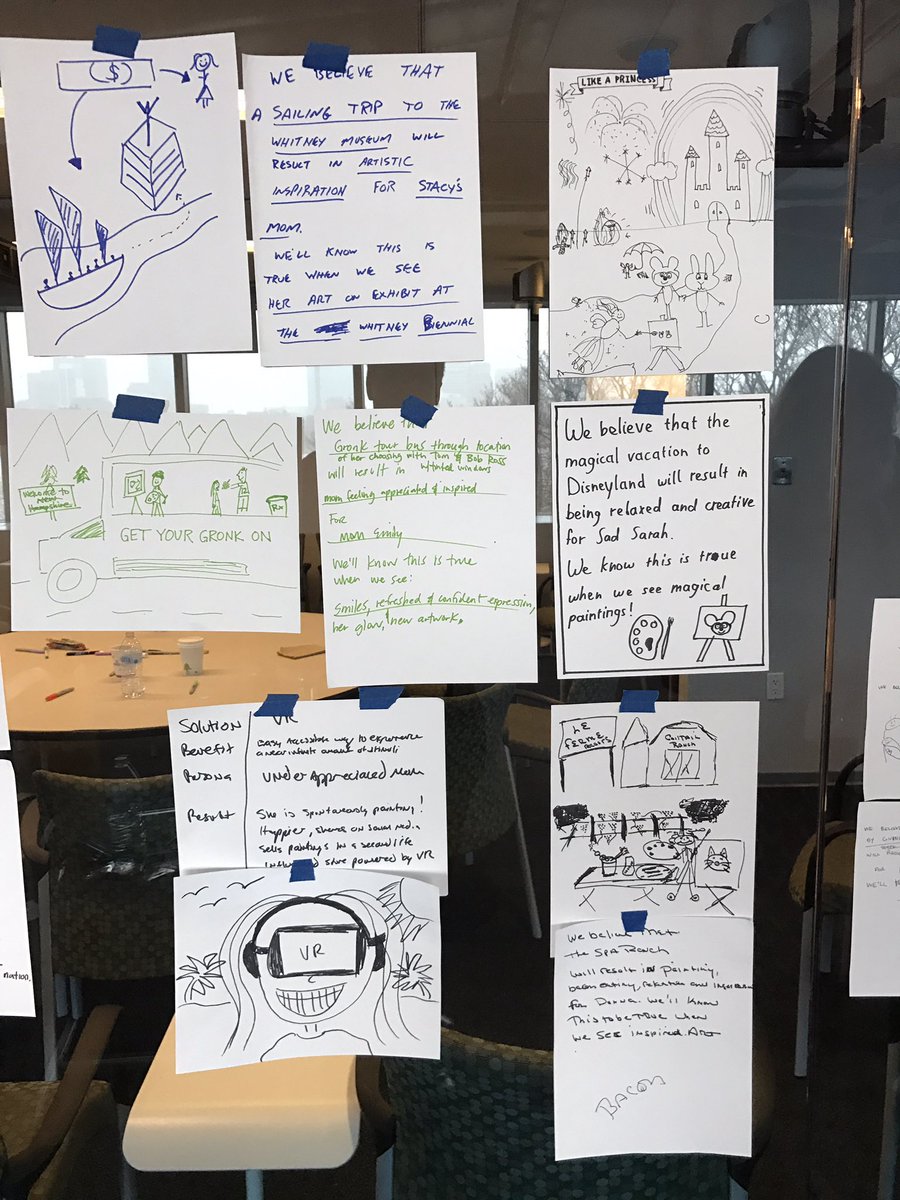 $
WE BELIEVE THAT
A SAILING TRIP TO THE
WHITNEY MUSEUM WILL
RESULT IN ARTISTIC
INSPIRATION FOR STACY'S
MOM.
WE'LL KNOW THIS IS
TRUE WHEN WE SEE
HER ART ON EXHIBIT AT
THE WHITNEY BIENNIAL
LIKE A PRINCESS
Welcome to
New
Hampshire
Rx
GET YOUR GRONK ON
We believe th
Gronk tour bus through location
of her choosing with Tom & Bob Ross
will result in w/tinted windows
mom feeling appreciated & inspired
For
Mom Emily
We'll know this is true
when we see:
Smiles, refreshed & confident expression,
her glow, new artwork.
We believe that the
magical vacation to
Disneyland will result in
being relaxed and creative
for Sad Sarah.
We know this is true
when we see magical
paintings!
Solution VR
Benefit Easy Accessible way to experience
a near infinite amount of
Persona Under Appreciated Mom
Result She is spontaneously painting!
Happier, shares on social media
sells paintings in a second life
store powered by VR
VR
LE
FERME
Ranch
We believe that
The Spa Ranch
will result in painting,
for Donna. We'll know
This to be true when
we see inspired Art
BACON
nation.
WE BELIEVE
WILL
FOR
WE'LL